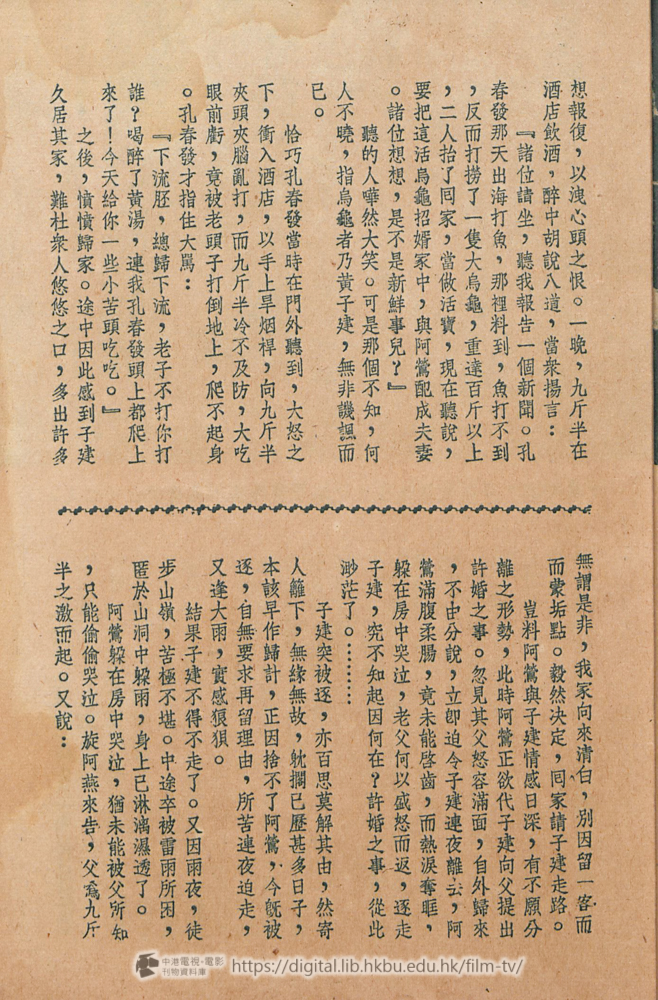 想報復，以洩心頭之恨。一晚，九斤半在
酒店飲酒，醉中胡說八道，當衆揚言：
『諸位請坐，聽我報告一個新聞。孔
春發那天出海打魚，那裡料到，魚打不到
，反而打撈了一隻大烏龜，重達百斤以上
，二人抬了囘家，當做活寶，現在聽說，
要把這活烏龜招婿家中，與阿鶯配成夫妻
。諸位想想，是不是新鮮事兒？』
聽的人嘩然大笑。可是那個不知，何
人不曉，指烏龜者乃黃子建，無非譏諷而
已。
恰巧孔春發當時在門外聽到，大怒之
下，衝入酒店，以手上旱烟桿，向九斤半
夾頭夾腦亂打，而九斤半冷不及防，大吃
眼前虧，竟被老頭子打倒地上，爬不起身
。孔春發才指住大罵：
『下流胚，總歸下流，老子不打你打
誰？喝醉了黃湯，連我孔春發頭上都爬上
來了！今天給你一些小苦頭吃吃。』
之後，憤憤歸家。途中因此感到子建
久居其家，難杜衆人悠悠之口，多出許多
無謂是非，我家向來清白，別因留一客而
而蒙垢點。毅然決定，囘家請子建走路。
豈料阿鶯與子建情感日深，有不願分
離之形勢，此時阿鶯正欲代子建向父提出
許婚之事。忽見其父怒容滿面，自外歸來
，不由分說，立卽迫令子建連夜離去，阿
鶯滿腹柔腸，竟未能啓齒，而熱淚奪眶，
躱在房中哭泣，老父何以盛怒而返，逐走
子建，究不知起因何在？許婚之事，從此
渺茫了。………
子建突被逐，亦百思莫解其由，然寄
人籬下，無緣無故，躭擱已歷甚多日子，
本該早作歸計，正因捨不了阿鶯，今旣被
逐，自無要求再留理由，所苦連夜迫走，
又逢大雨，實感狼狽。
結果子建不得不走了。又因雨夜，徒
步山嶺，苦極不堪。中途卒被雷雨所困，
匿於山洞中躱雨，身上已淋漓濕透了。
阿鶯躱在房中哭泣，猶未能被父所知
，只能偷偷哭泣。旋阿燕來告，父爲九斤
半之激而起。又說：
中港電視・電影
刊物資料庫
https://digital.lib.hkbu.edu.hk/film-tv/